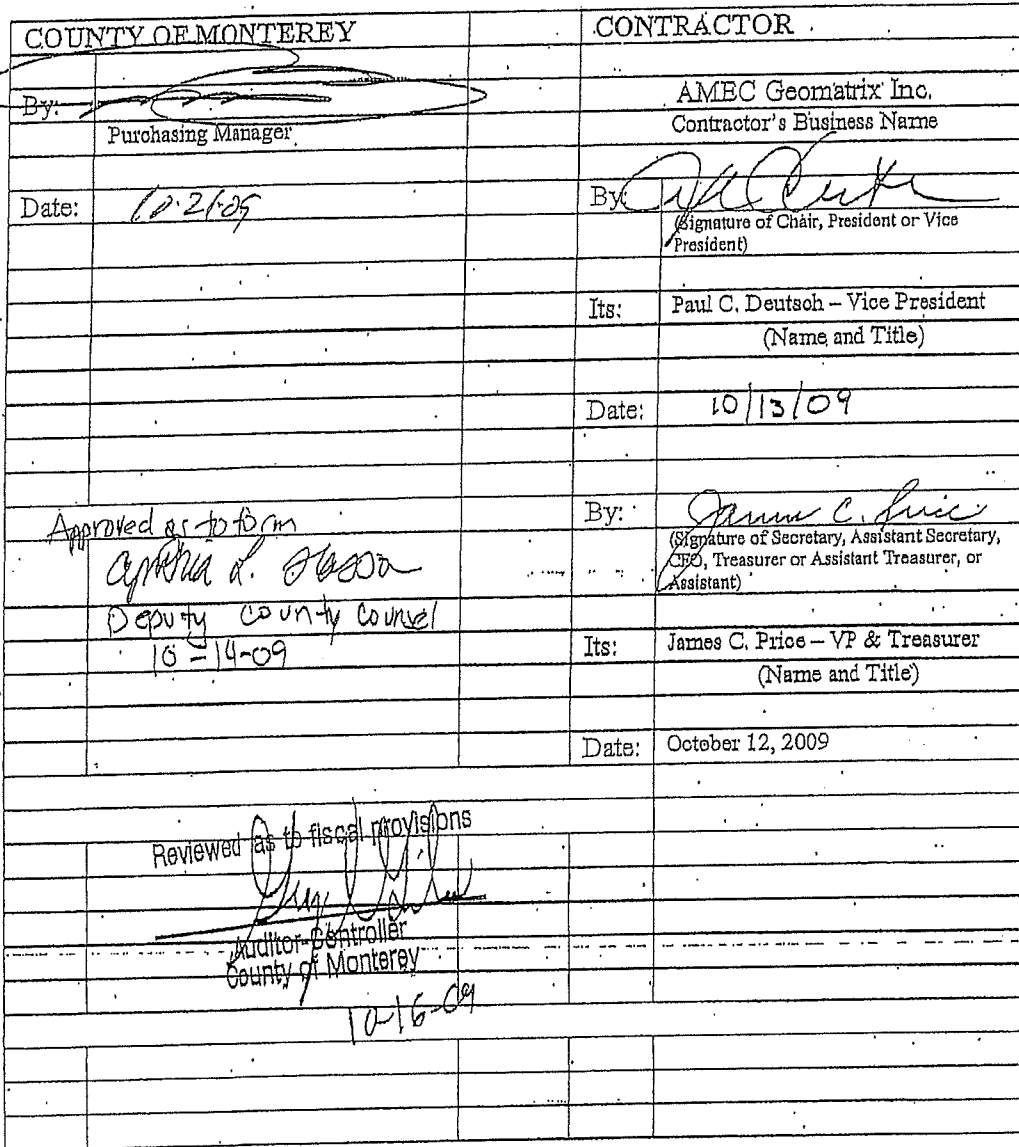 COUNTY OF MONTEREY
By:
Purchasing Manager
Date:
Approved as to form
Cynthia L.
Deputy County Counsel
10-14-09
Reviewed as to fiscal provisions
Auditor-Controller
County of Monterey
10-16-09
CONTRACTOR
AMEC Geomatrix Inc.
Contractor's Business Name
By:
(Signature of Chair, President or Vice
President)
Its: Paul C. Deutsch – Vice President
(Name and Title)
Date: 10/13/09
By: James C. Price
(Signature of Secretary, Assistant Secretary,
CFO, Treasurer or Assistant Treasurer, or
Assistant)
Its: James C. Price – VP & Treasurer
(Name and Title)
Date: October 12, 2009